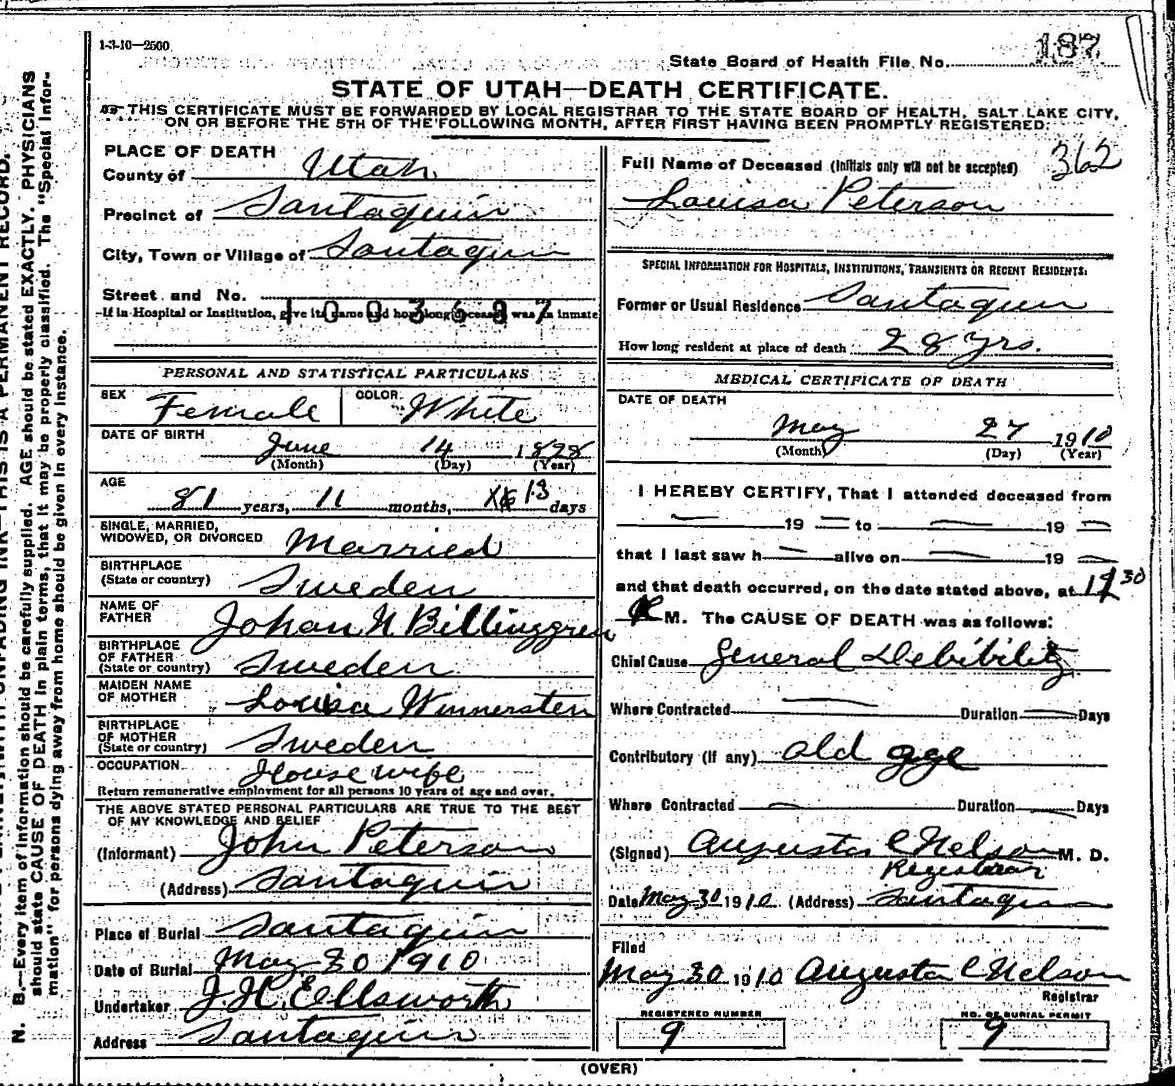 1-3-10—2500
State Board of Health File No. 187
STATE OF UTAH—DEATH CERTIFICATE.
THIS CERTIFICATE MUST BE FORWARDED BY LOCAL REGISTRAR TO THE STATE BOARD OF HEALTH, SALT LAKE CITY,
ON OR BEFORE THE 5TH OF THE FOLLOWING MONTH, AFTER FIRST HAVING BEEN PROMPTLY REGISTERED:
PLACE OF DEATH
County of Utah
Precinct of Santaquin
City, Town or Village of Santaquin
Street and No.
1003687
If in Hospital or Institution, give its name and how long deceased was an inmate
PERSONAL AND STATISTICAL PARTICULARS
SEX Female COLOR White
DATE OF BIRTH June 14 1828
(Month) (Day) (Year)
AGE
81 years, 11 months, 13 days
SINGLE, MARRIED,
WIDOWED, OR DIVORCED Married
BIRTHPLACE
(State or country) Sweden
NAME OF
FATHER Johan N Billinggren
BIRTHPLACE
OF FATHER
(State or country) Sweden
MAIDEN NAME
OF MOTHER Louisa Winnersten
BIRTHPLACE
OF MOTHER
(State or country) Sweden
OCCUPATION House wife
Return remunerative employment for all persons 10 years of age and over.
THE ABOVE STATED PERSONAL PARTICULARS ARE TRUE TO THE BEST
OF MY KNOWLEDGE AND BELIEF
(Informant) John Peterson
(Address) Santaquin
Place of Burial Santaquin
Date of Burial May 30 1910
Undertaker J H Ellsworth
Address Santaquin
Full Name of Deceased (Initials only will not be accepted) 362
Louisa Peterson
SPECIAL INFORMATION FOR HOSPITALS, INSTITUTIONS, TRANSIENTS OR RECENT RESIDENTS:
Former or Usual Residence Santaquin
How long resident at place of death 28 yrs.
MEDICAL CERTIFICATE OF DEATH
DATE OF DEATH
May 27 1910
(Month) (Day) (Year)
I HEREBY CERTIFY, That I attended deceased from
— 19 — to — 19 —
that I last saw h — alive on — 19 —
and that death occurred, on the date stated above, at
M. The CAUSE OF DEATH was as follows:
Chief Cause General Debibility
Where Contracted — Duration — Days
Contributory (if any) old age
Where Contracted — Duration — Days
(Signed) Augusta C Nelson M. D.
Registrar
Date May 30 1910 (Address) Santaquin
Filed
May 30 1910 Augusta C Nelson
Registrar
REGISTERED NUMBER
9
NO. OF BURIAL PERMIT
9
(OVER)
THIS IS A PERMANENT RECORD.
N. B.—Every item of information should be carefully supplied. AGE should be stated EXACTLY. PHYSICIANS
should state CAUSE OF DEATH in plain terms, that it may be properly classified. The "Special Infor-
mation" for persons dying away from home should be given in every instance.